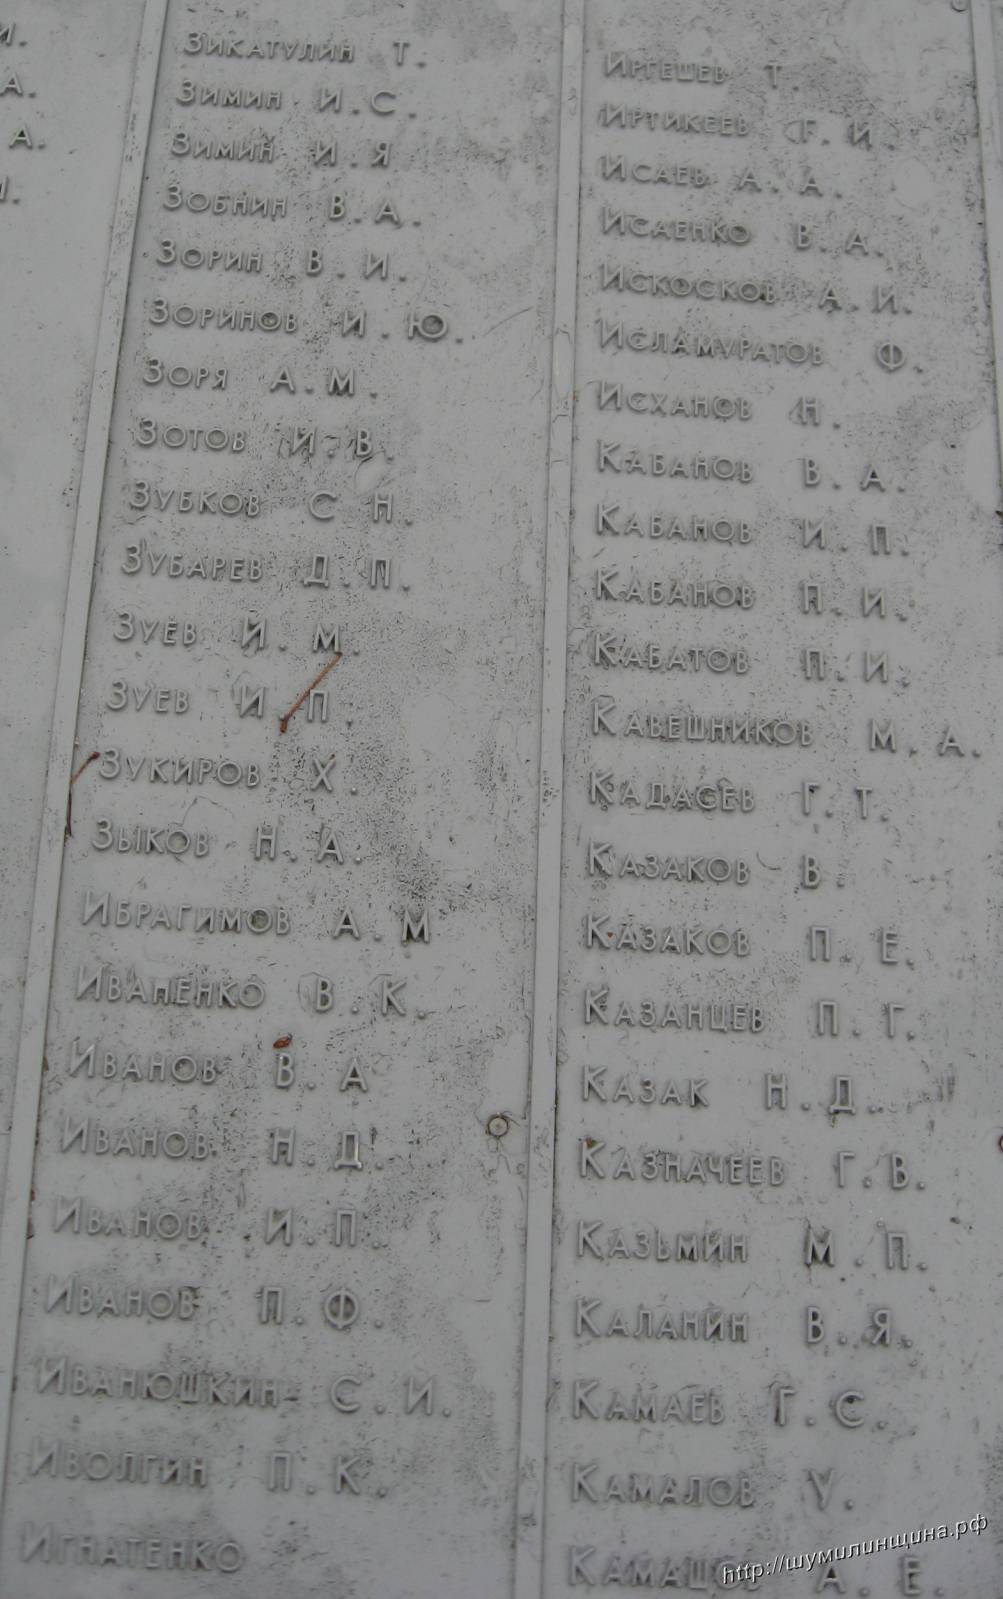 И.
А.
А.
И.
Зикатулин Т.
Зимин И.С.
Зимин И.Я
Зобнин В.А.
Зорин В.И.
Зоринов И.Ю.
Зоря А.М.
Зотов И.В.
Зубков С Н.
Зубарев Д.П.
Зуев И.М.
Зуев И.П.
Зукиров Х.
Зыков Н.А.
Ибрагимов А.М
Иваненко В.К.
Иванов В.А
Иванов Н.Д.
Иванов И.П.
Иванов П.Ф.
Иванюшкин С.И.
Иволгин П.К.
Игнатенко
Иргешев Т.
Иртикеев Г.И.
Исаев А.А.
Исаенко В.А.
Искосков А.И.
Исламуратов Ф.
Исханов Н.
Кабанов В.А.
Кабанов И.П.
Кабанов П.И.
Кабатов П.И.
Кавешников М.А.
Кадасев Г.Т.
Казаков В.
Казаков П.Е.
Казанцев П.Г.
Казак Н.Д.
Казначеев Г.В.
Казьмин М.П.
Каланин В.Я.
Камаев Г.С.
Камалов У.
А.Е.
http://шумилинщина.рф